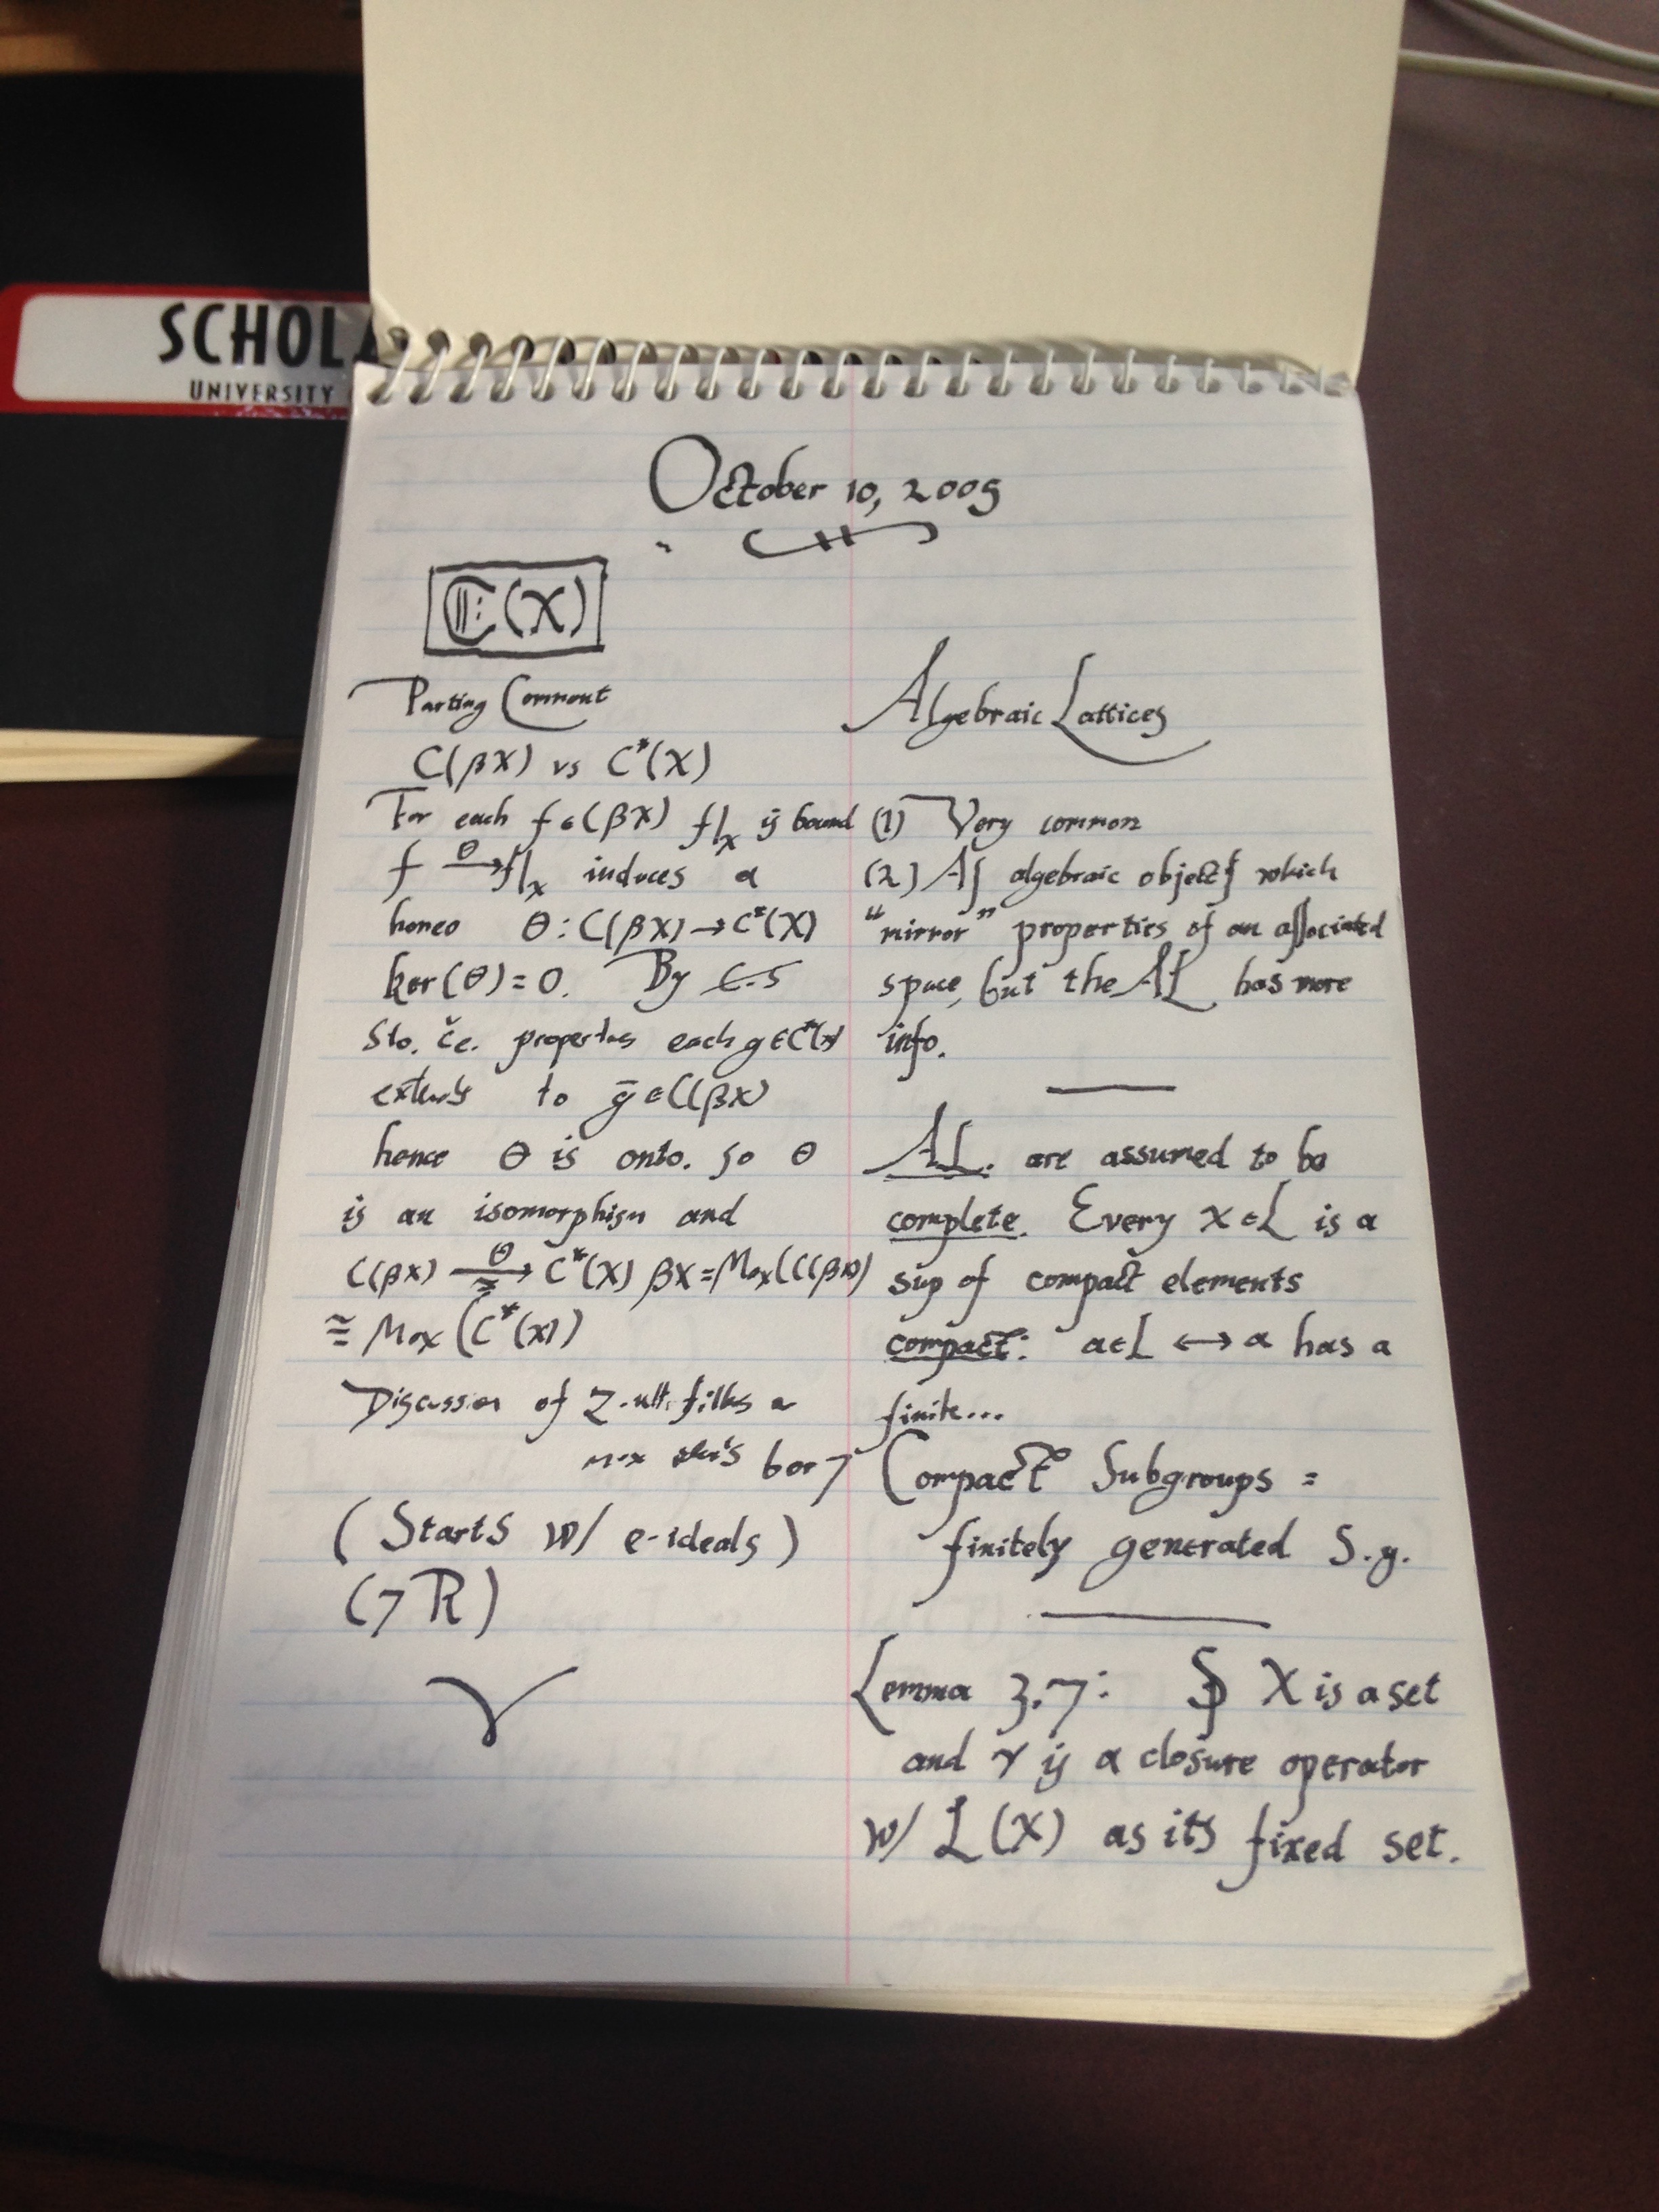 SCHOL
UNIVERSITY
October 10, 2009
ℂ(X)
Parting Comment
C(βX) vs C*(X)
For each f ∈ C(βX) f|x is bound
f →θ f|x induces a
hence θ: C(βX) → C*(X)
ker(θ) = 0. By
Sto. Če. properties each g ∈ C*(X)
extends to ḡ ∈ C(βX)
hence θ is onto. So θ
is an isomorphism and
C(βX) →θ≅ C*(X) βX = Max(C(βX))
≅ Max(C*(X))
Discussion of Z-ult. filters
max
(Starts w/ e-ideals)
(7R)
Algebraic Lattices
(1) Very common
(2) As algebraic objects which
"mirror" properties of an associated
space, but the AL has more
info.
A.L. are assumed to be
complete. Every x ∈ L is a
sup of compact elements
compact: a ∈ L ↔ a has a
finite...
Compact Subgroups =
finitely generated S.g.
Lemma 3.7: X is a set
and γ is a closure operator
w/ L(X) as its fixed set.